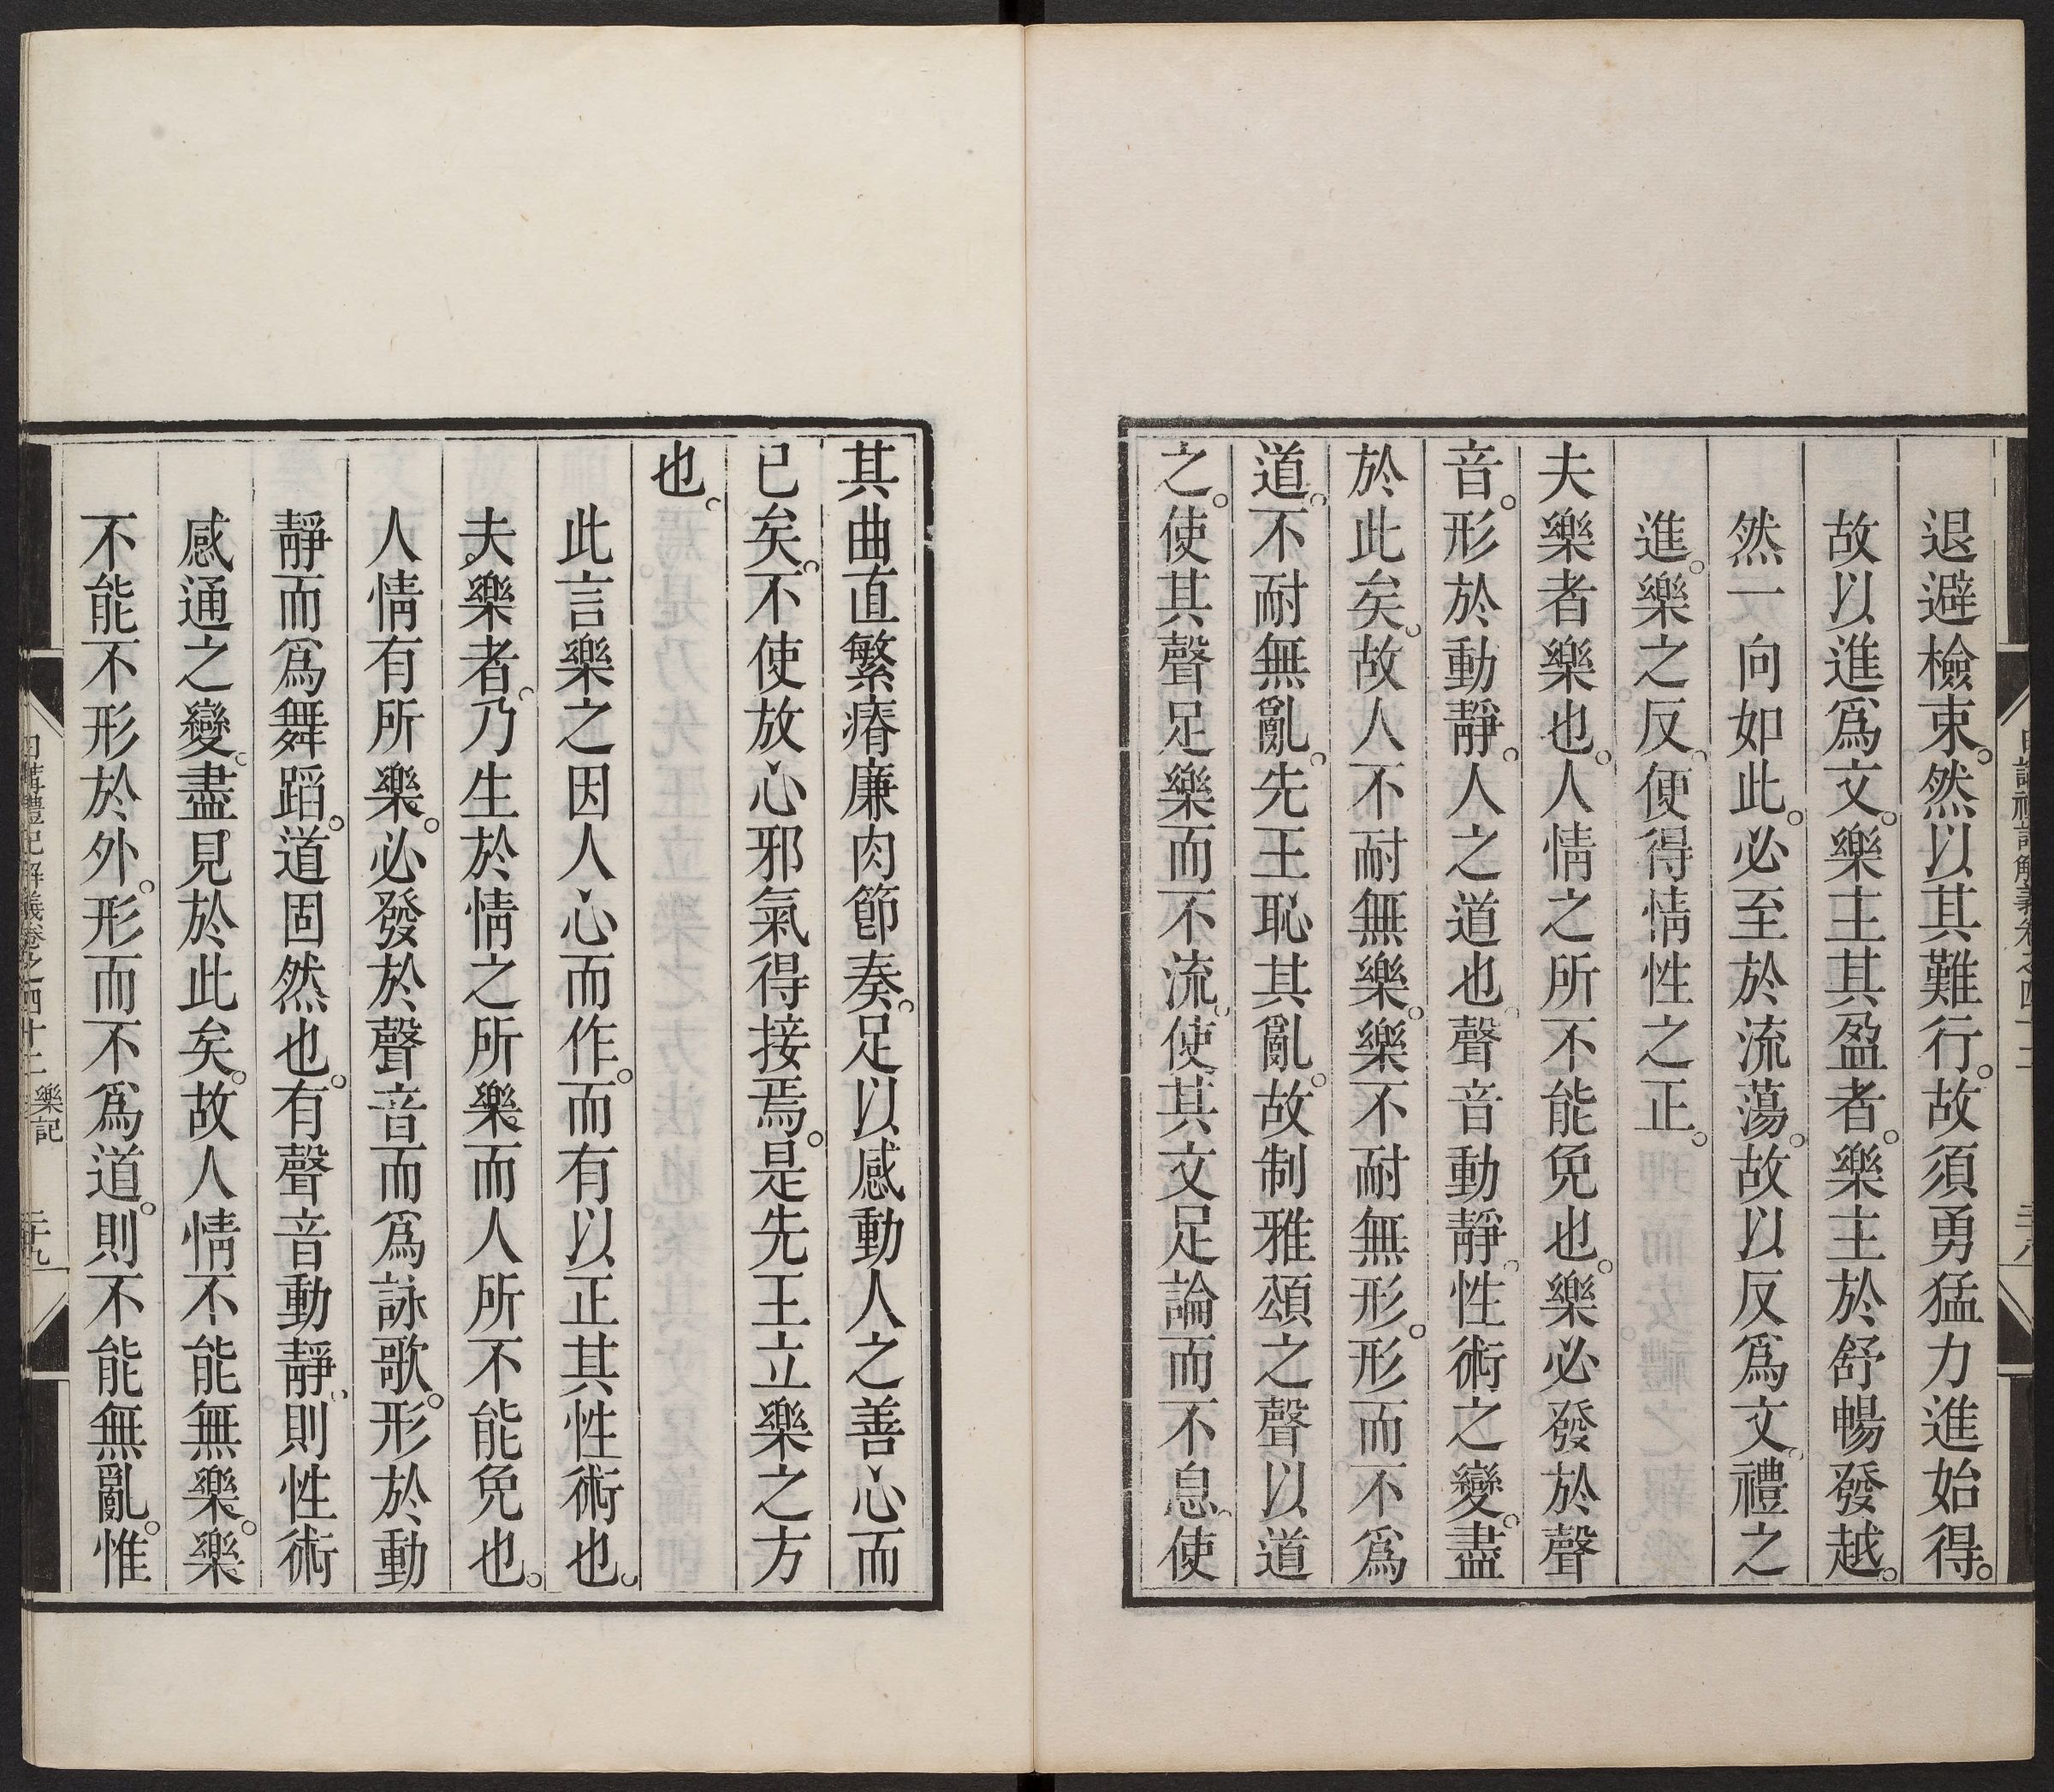 退避檢束。然以其難行。故須勇猛力進始得。
故以進爲文。樂主其盈者。樂主於舒暢發越。
然一向如此。必至於流蕩。故以反爲文。禮之
進。樂之反。便得情性之正。
夫樂者樂也。人情之所不能免也。樂必發於聲
音。形於動靜。人之道也。聲音動靜。性術之變。盡
於此矣。故人不耐無樂。樂不耐無形。形而不爲
道。不耐無亂。先王恥其亂。故制雅頌之聲以道
之。使其聲足樂而不流。使其文足論而不息。使
其曲直繁瘠廉肉節奏。足以感動人之善心而
已矣。不使放心邪氣得接焉。是先王立樂之方
也。
此言樂之因人心而作。而有以正其性術也。
夫樂者。乃生於情之所樂而人所不能免也。
人情有所樂。必發於聲音而爲詠歌。形於動
靜而爲舞蹈。道固然也。有聲音動靜。則性術
感通之變。盡見於此矣。故人情不能無樂。樂
不能不形於外。形而不爲道。則不能無亂。惟
日講禮記解義卷之四十二 樂記 二十九